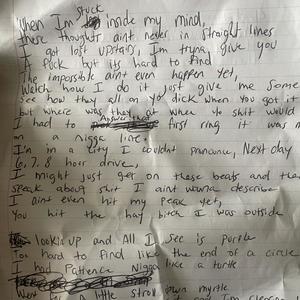 When I'm stuck inside my mind,
these thoughts aint never in straight lines
I got lost upstairs, I'm tryna give you
A fuck but its hard to find
the impossible aint even happen yet,
Watch how I do it, just give me some
See how they all on yo dick when you got it
but where was they at when yo shit would
I had to Answer the first ring it was
on a nigga line
I'm in a city I couldnt pronounce, Next day
6, 7, 8 hour drive,
I might just get on these beats and the
speak about shit I aint wanna describe
I aint even hit my peak yet,
You hit the hay bitch I was outside
lookin up and All I see is Purple
Too hard to find like the end of a circle
I had Patience Nigga like a turtle
Went for a little stroll down myrtle